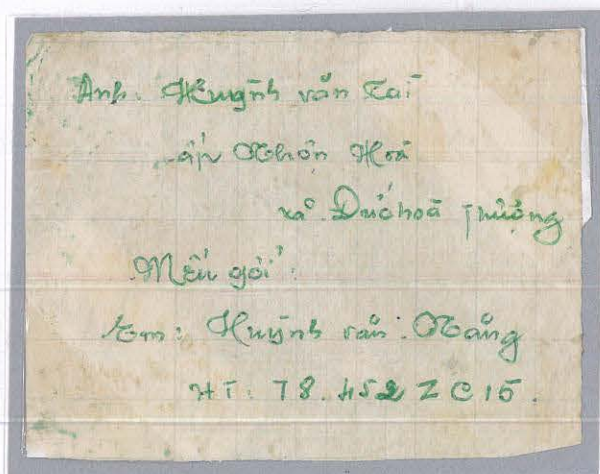 Anh: Huỳnh văn Tai
ấp Nhơn Hoà
xã. Đức hoà Thượng
Mếu gởi:
Em: Huỳnh văn: Năng
HT: 78.452 ZC15.